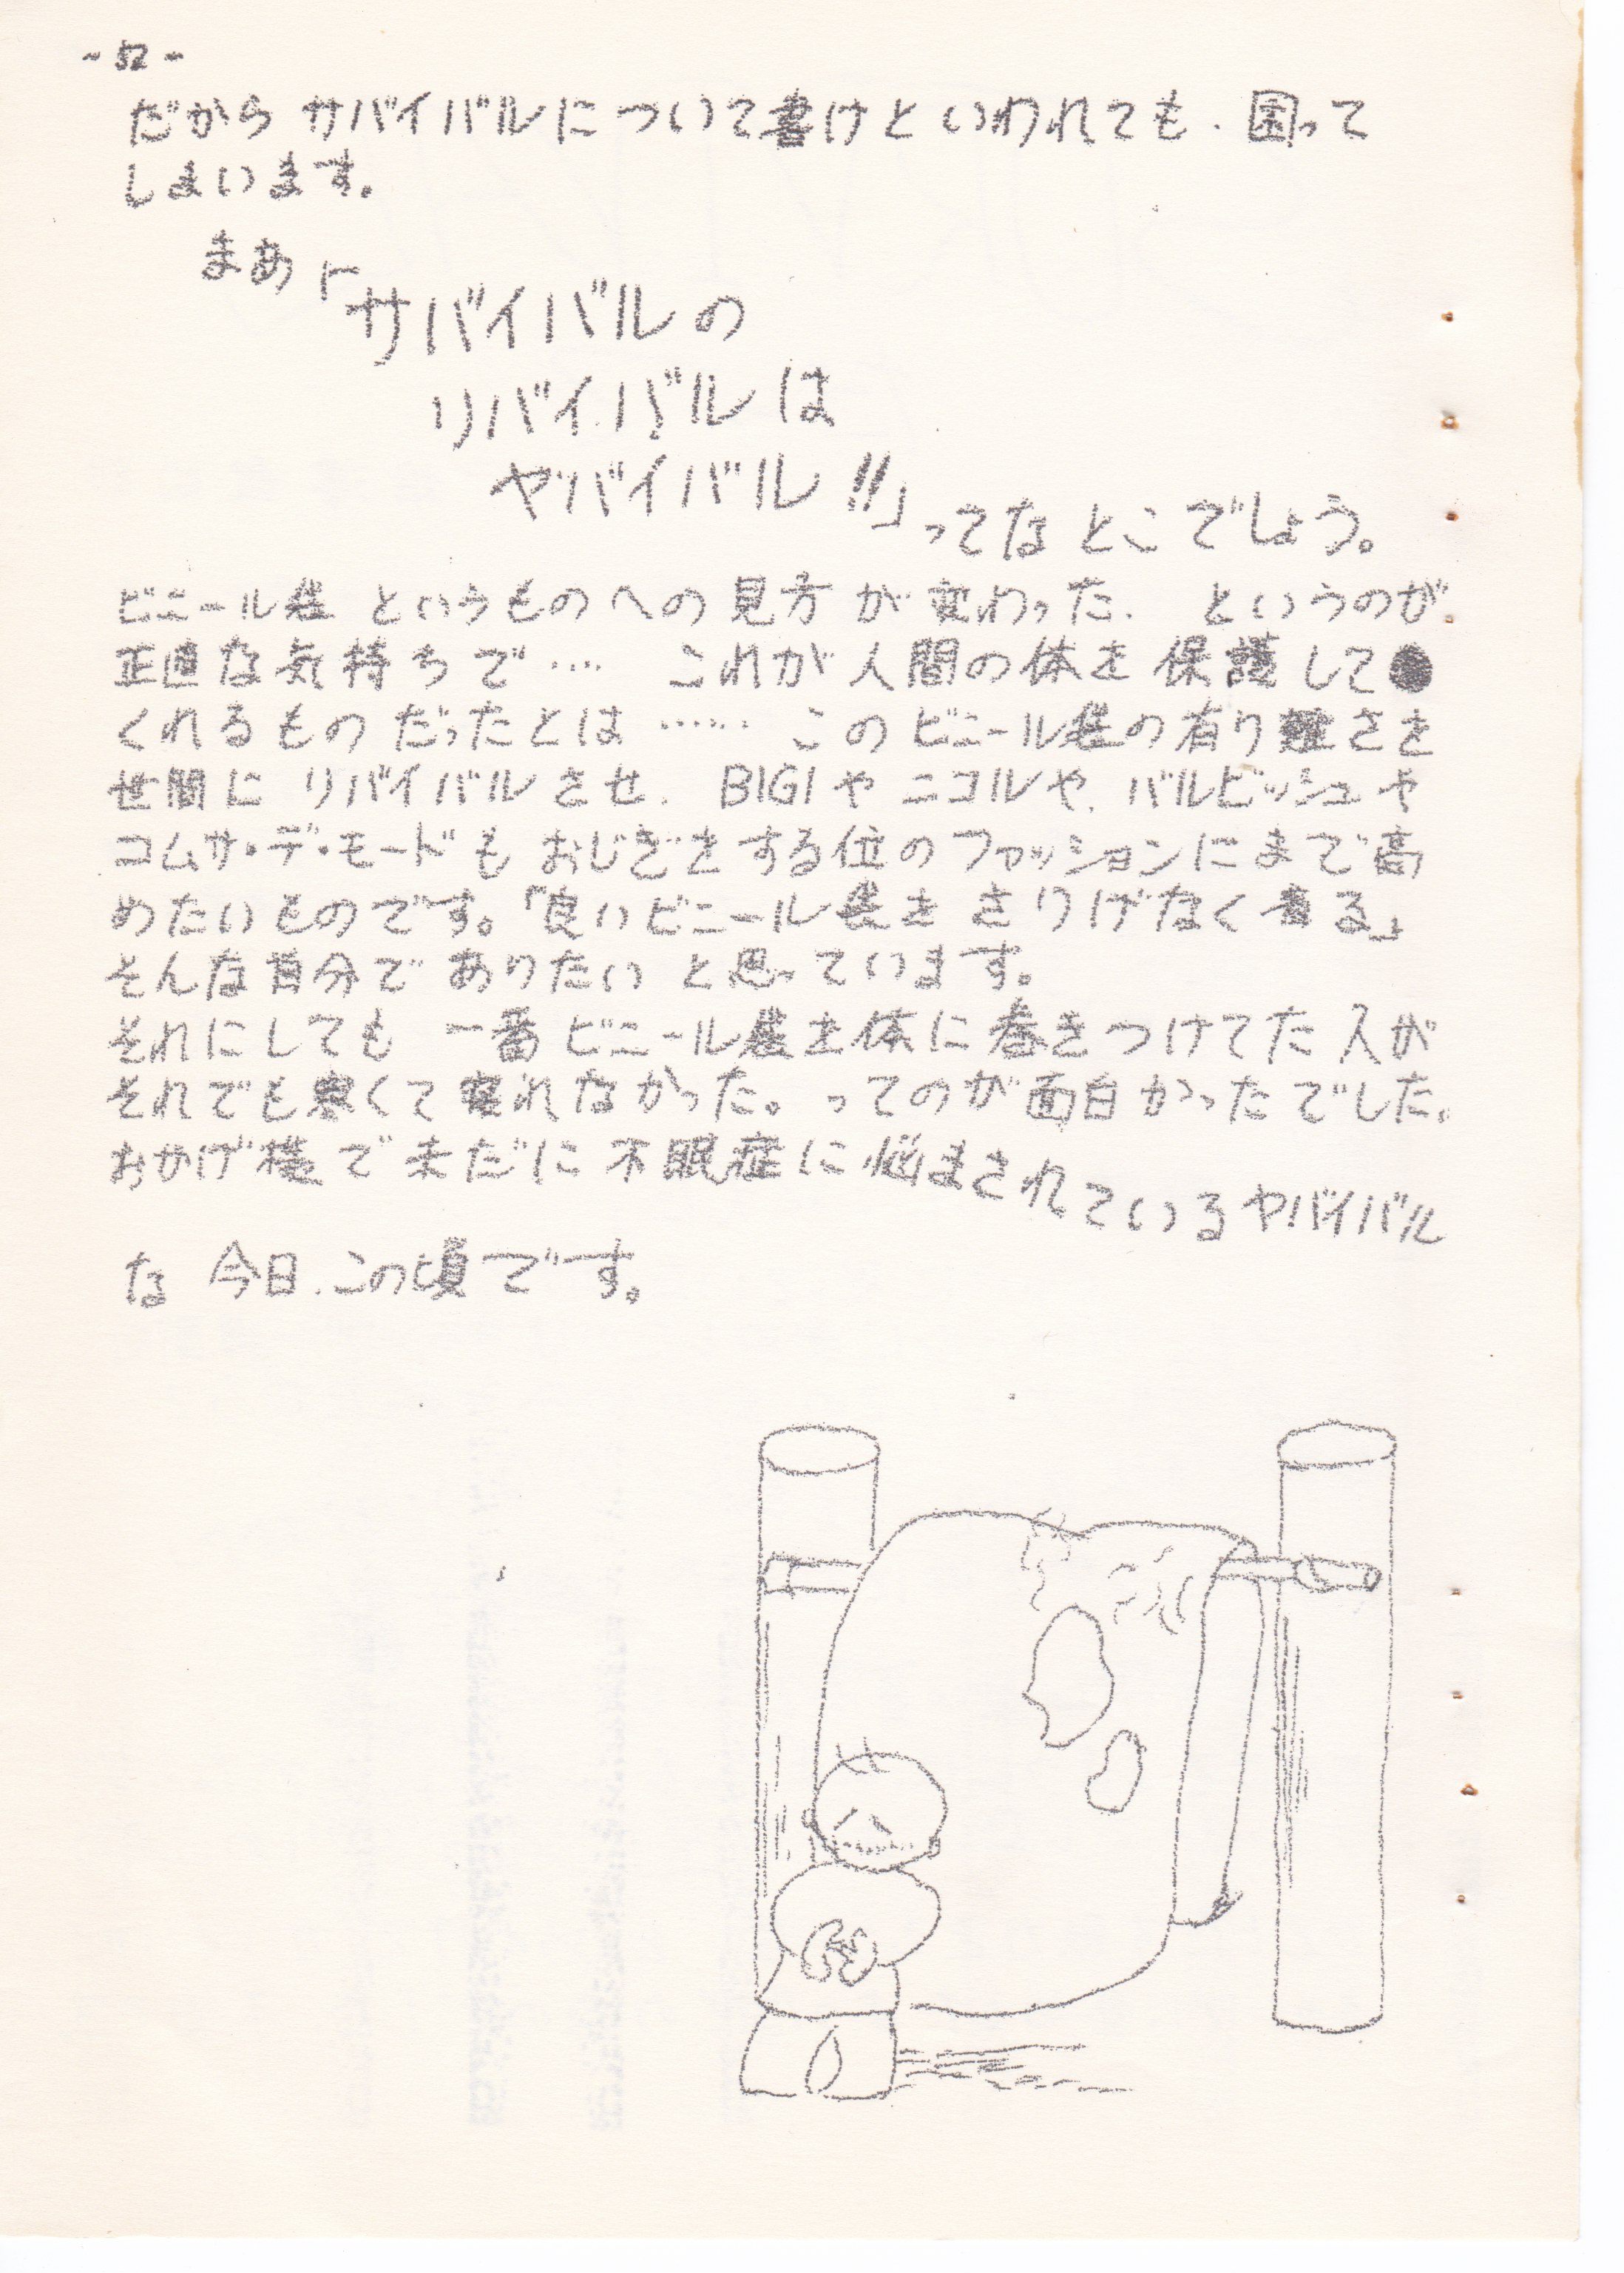 - 52 -
だから サバイバルについて書けといわれても. 困って
しまいます。
まあ「サバイバルの
リバイバルは
ヤバイバル!!」ってなとこでしょう。
ビニール袋 というものへの見方が変わった. というのが
正直な気持ちで…. これが人間の体を保護して
くれるものだったとは …… このビニール袋の有り難さを
世間に リバイバルさせ. BIGIや ニコルや. バルビッシュや
コムサ・デ・モードも おじぎをする位のファッションにまで高
めたいものです。「良いビニール袋を さりげなく着る」
そんな自分でありたい と思っています。
それにしても 一番ビニール袋を体に巻きつけてた人が
それでも寒くて寝れなかった。ってのが面白かったでした。
おかげ様で未だに不眠症に悩まされているヤバイバル
な 今日.この頃です。